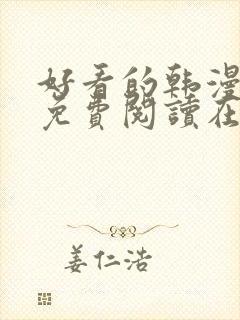 好看的韩漫
免費閱讀在
姜仁浩